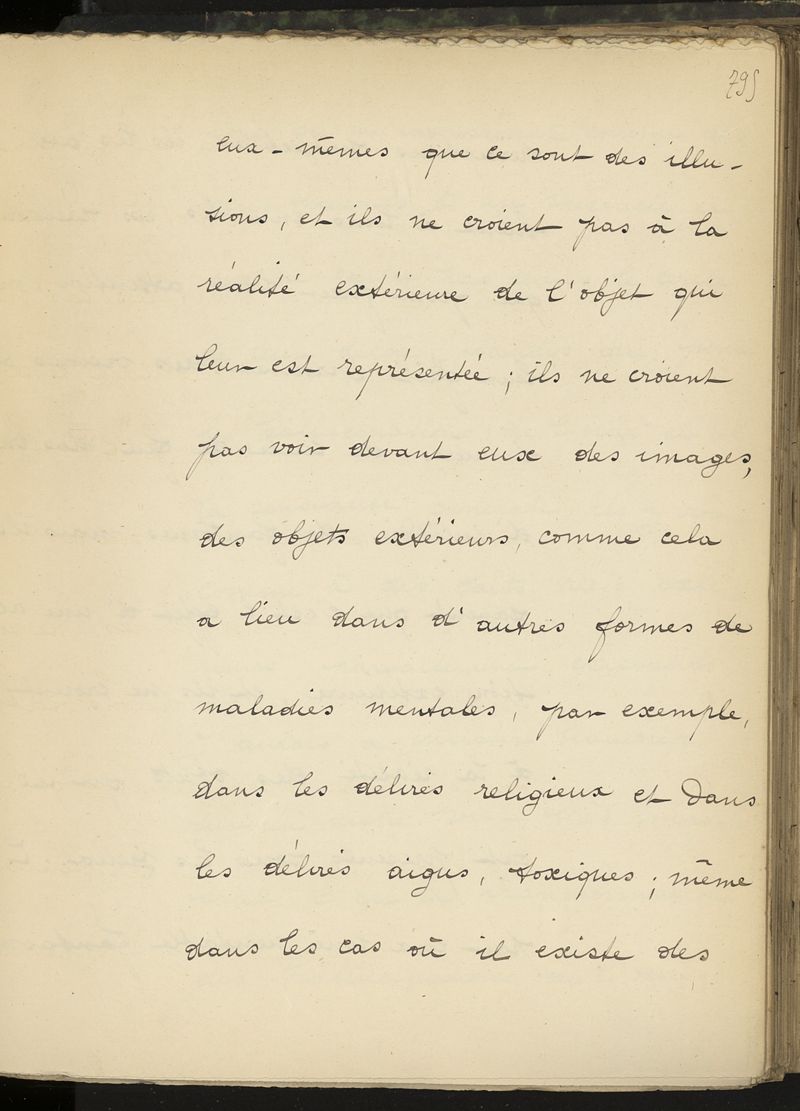 795
eux-mêmes que ce sont des illu-
sions, et ils ne croient pas à la
réalité extérieure de l'objet qui
leur est représentée; ils ne croient
pas voir devant eux des images,
des objets extérieurs, comme cela
a lieu dans d'autres formes de
maladies mentales, par exemple,
dans les délires religieux et dans
les délires aigus, toxiques; même
dans les cas où il existe des